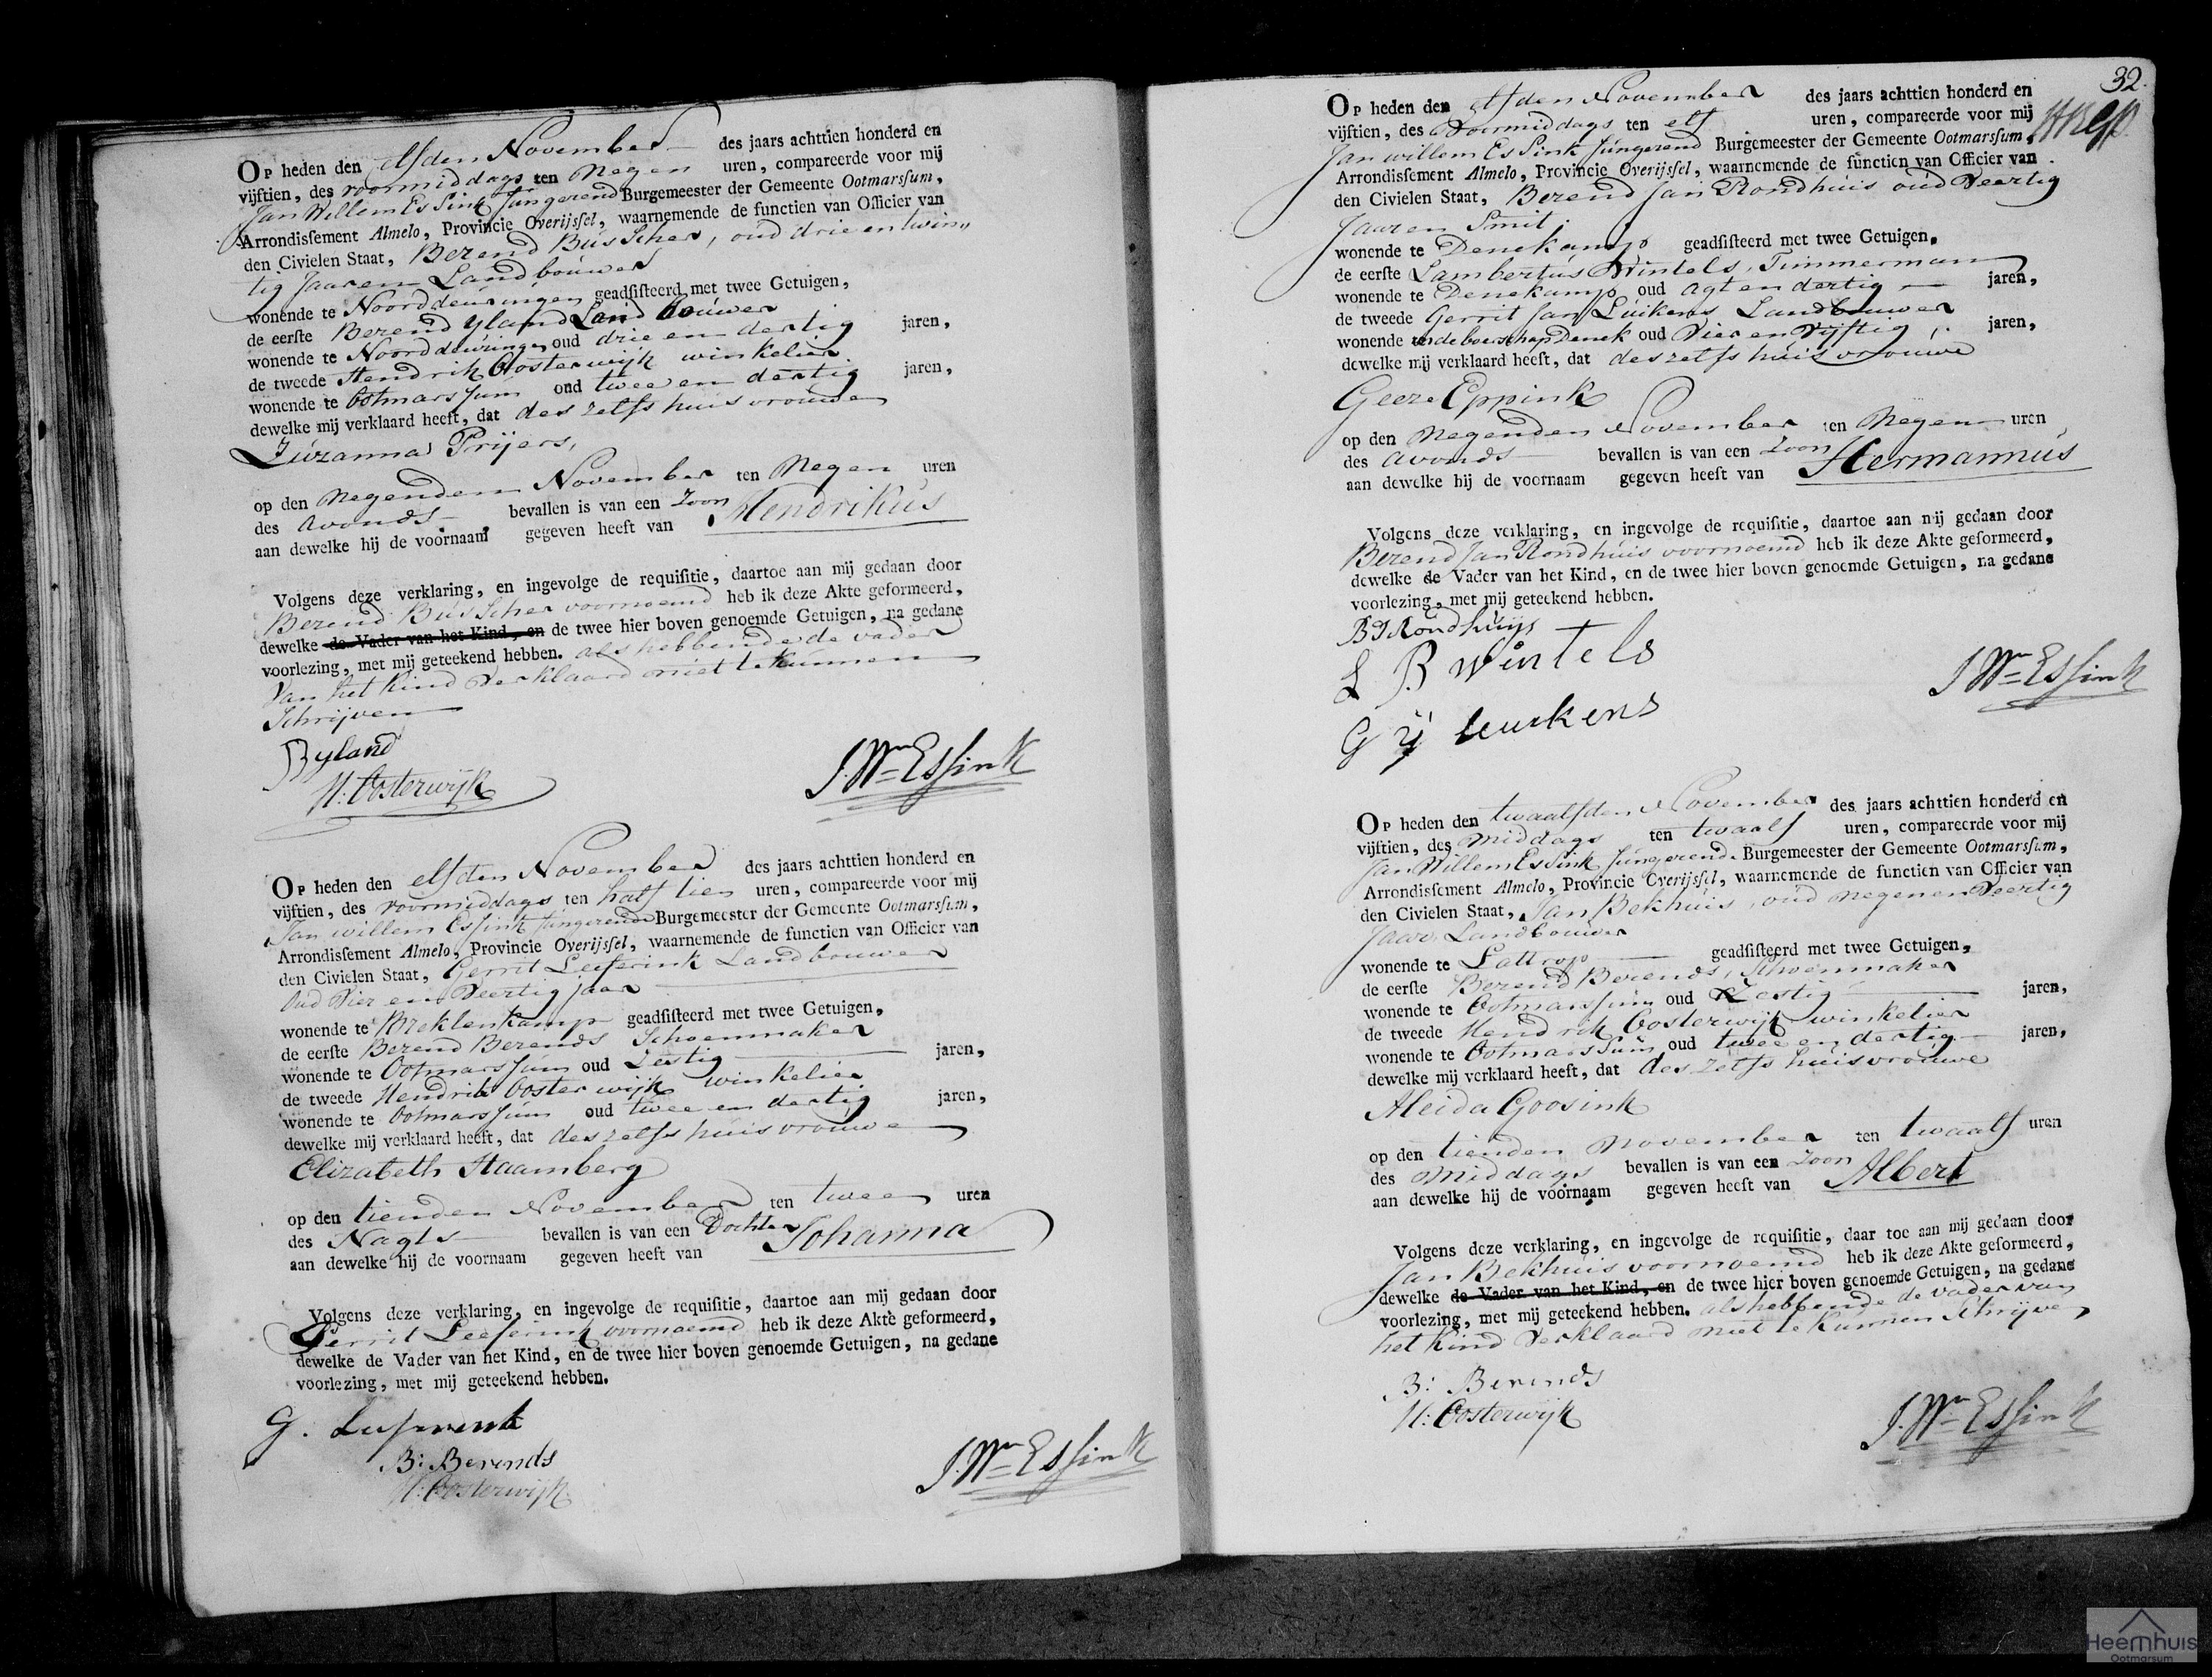 Op heden den elfden November des jaars achttien honderd en
vijftien, des voormiddags ten Negen uren, compareerde voor mij
Jan Willem Essink fungerend Burgemeester der Gemeente Ootmarsſum,
Arrondisſement Almelo, Provincie Overijsſel, waarnemende de functien van Officier van
den Civielen Staat, Berend Busscher, oud drie en twin„
tig Jaaren Landbouwer
wonende te Noorddeuringen geadſiſteerd met twee Getuigen,
de eerſte Berend Yland Landbouwer
wonende te Noorddeuringen oud drie en dertig jaren,
de tweede Hendrik Oosterwijk winkelier
wonende te Ootmarssum oud twee en dertig jaren,
dewelke mij verklaard heeft, dat deszelfs huisvrouwe
Zuzanna Prijers,
op den Negenden November ten Negen uren
des Avonds, bevallen is van een Zoon
aan dewelke hij de voornaam gegeven heeft van Hendrikus
Volgens deze verklaring, en ingevolge de requiſitie, daartoe aan mij gedaan door
Berend Busscher voornoemd heb ik deze Akte geformeerd,
dewelke de Vader van het Kind, en de twee hier boven genoemde Getuigen, na gedane
voorlezing, met mij geteekend hebben. als hebbende de vader
van het kind verklaard niet te kunnen
Schrijven
B yland
H: Oosterwijk
J. Wm Essink
Op heden den elfden November des jaars achttien honderd en
vijftien, des voormiddags ten half tien uren, compareerde voor mij
Jan willem Essink fungerende Burgemeester der Gemeente Ootmarsſum,
Arrondisſement Almelo, Provincie Overijsſel, waarnemende de functien van Officier van
den Civielen Staat, Gerrit Leeferink Landbouwer
Oud Vier en Veertig jaar
wonende te Breklenkamp geadſiſteerd met twee Getuigen,
de eerſte Berend Berends Schoenmaker
wonende te Ootmarssum oud Zestig jaren,
de tweede Hendrik Oosterwijk winkelier
wonende te Ootmarssum oud twee en dertig jaren,
dewelke mij verklaard heeft, dat deszelfs huisvrouwe
Elizabeth Haamberg
op den tienden November ten twee uren
des Nagts bevallen is van een Dochter
aan dewelke hij de voornaam gegeven heeft van Johanna
Volgens deze verklaring, en ingevolge de requiſitie, daartoe aan mij gedaan door
Gerrit Leeferink voornoemd heb ik deze Akte geformeerd,
dewelke de Vader van het Kind, en de twee hier boven genoemde Getuigen, na gedane
voorlezing, met mij geteekend hebben.
G.
B: Berends
H: Oosterwijk
J. Wm Essink
32.
Op heden den elfden November des jaars achttien honderd en
vijftien, des Voormiddags ten elf uren, compareerde voor mij
Jan willem Essink fungerend Burgemeester der Gemeente Ootmarsſum,
Arrondisſement Almelo, Provincie Overijsſel, waarnemende de functien van Officier van
den Civielen Staat, Berend Jan Rondhuis oud Veertig
Jaaren Smit
wonende te Denekamp geadſiſteerd met twee Getuigen,
de eerſte Lambertus Wintels, Timmerman
wonende te Denekamp oud Agt en dertig jaren,
de tweede Gerrit Jan Luikens Landbouwer
wonende in de boerschap Denek oud Vier en Vijftig jaren,
dewelke mij verklaard heeft, dat deszelfs huisvrouwe
Geeze Eppink
op den Negenden November ten Negen uren
des Avonds bevallen is van een Zoon
aan dewelke hij de voornaam gegeven heeft van Hermannus
Volgens deze verklaring, en ingevolge de requiſitie, daartoe aan mij gedaan door
Berend Jan Rondhuis voornoemd heb ik deze Akte geformeerd,
dewelke de Vader van het Kind, en de twee hier boven genoemde Getuigen, na gedane
voorlezing, met mij geteekend hebben.
B J Rondhuijs
L B Wintels
G J Leurkens
J Wm Essink
Op heden den twaalfden November des jaars achttien honderd en
vijftien, des middags ten twaalf uren, compareerde voor mij
Jan Willem Essink fungerend Burgemeester der Gemeente Ootmarsſum,
Arrondisſement Almelo, Provincie Overijsſel, waarnemende de functien van Officier van
den Civielen Staat, Jan Bekhuis, oud Negenen Veertig
Jaar, Landbouwer
wonende te Lattrop geadſiſteerd met twee Getuigen,
de eerſte Berend Berends, Schoenmaker
wonende te Ootmarssum oud Zestig jaren,
de tweede Hendrik Oosterwijk winkelier
wonende te Ootmarssum oud twee en dertig jaren,
dewelke mij verklaard heeft, dat deszelfs huisvrouwe
Aleida Goosink
op den tienden November ten twaalf uren
des Middags bevallen is van een Zoon
aan dewelke hij de voornaam gegeven heeft van Albert
Volgens deze verklaring, en ingevolge de requiſitie, daar toe aan mij gedaan door
Jan Bekhuis voornoemd heb ik deze Akte geformeerd,
dewelke de Vader van het Kind, en de twee hier boven genoemde Getuigen, na gedane
voorlezing, met mij geteekend hebben. als hebbende de vader van
het kind Verklaard niet te kunnen Schrijven
B: Berends
H: Oosterwijk
J. Wm Essink
Heemhuis
Ootmarsum